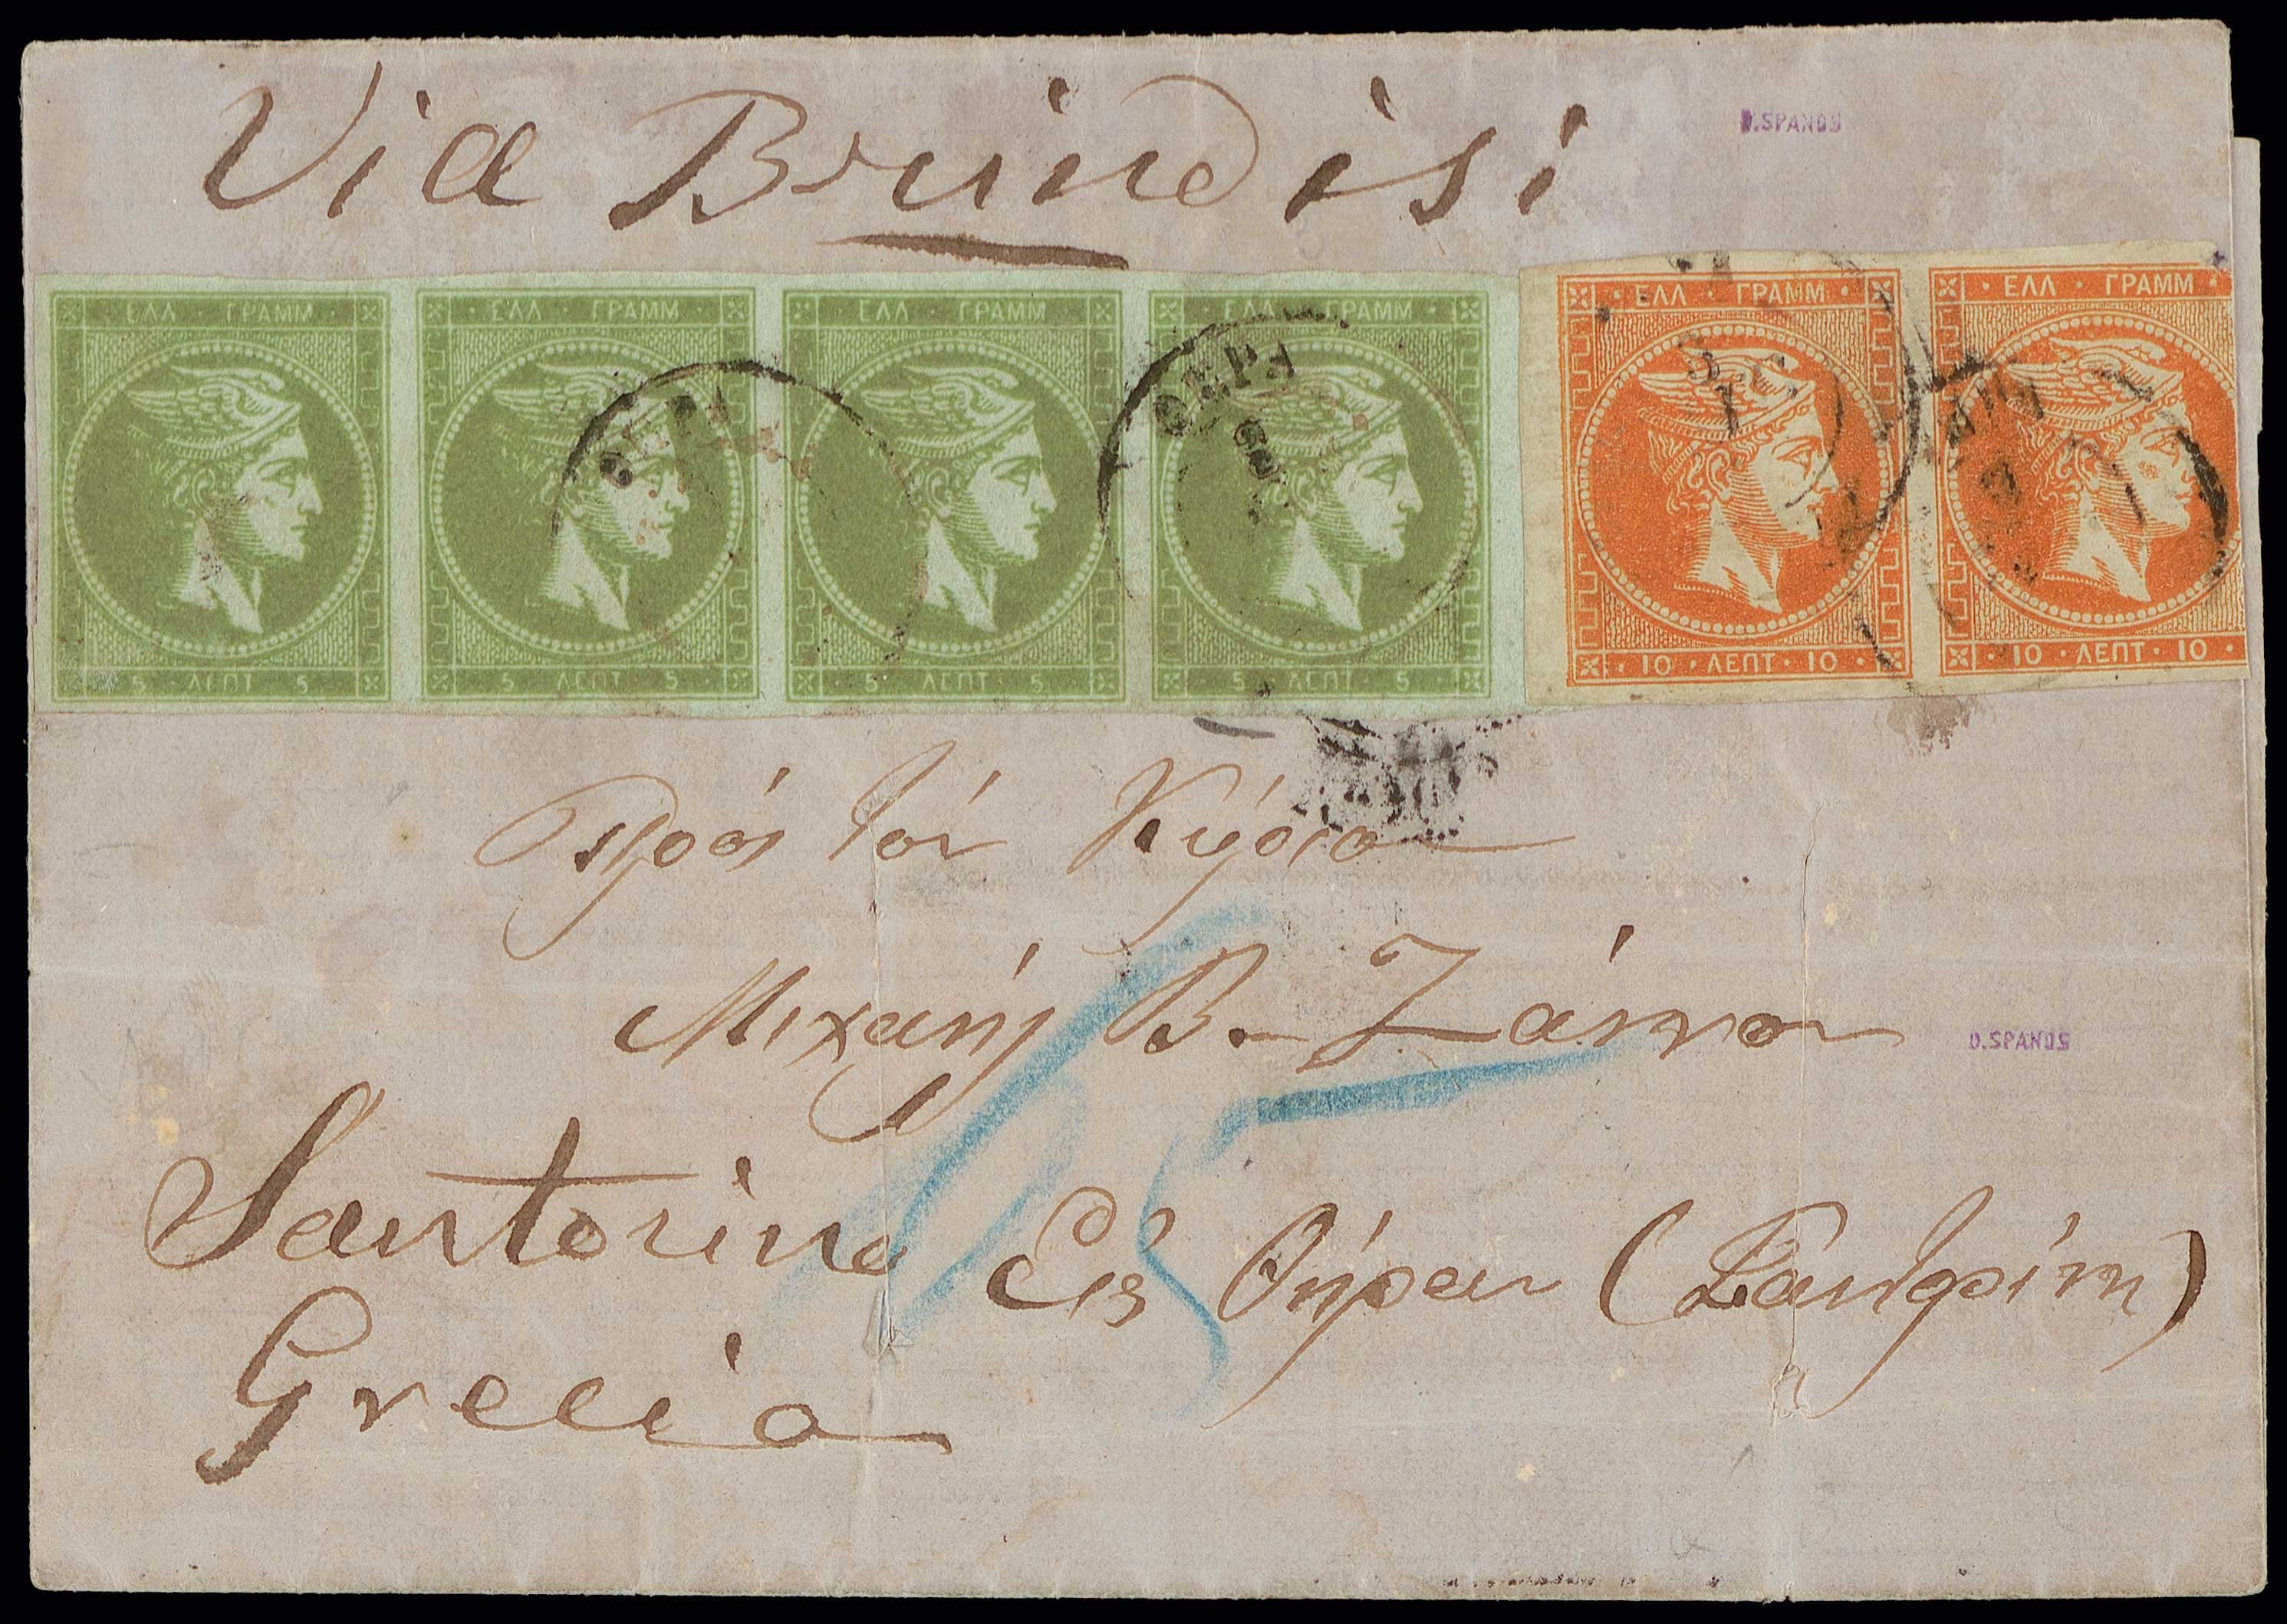 Via Brindisi
D.SPANOS
ΕΛΛ · ΓΡΑΜΜ
ΕΛΛ · ΓΡΑΜΜ
ΕΛΛ · ΓΡΑΜΜ
ΕΛΛ · ΓΡΑΜΜ
ΕΛΛ · ΓΡΑΜΜ
ΕΛΛ · ΓΡΑΜΜ
ΘΗΡΑ
ΘΗΡΑ
5 ΛΕΠΤ 5
5 ΛΕΠΤ 5
5 ΛΕΠΤ 5
5 ΛΕΠΤ 5
10 · ΛΕΠΤ · 10
10 · ΛΕΠΤ · 10
Πρὸς τὸν Κύριο
Μιχαήλ Β. Ζάννον
D.SPANOS
Santorino Εἰς Θήραν (Σαντορίνη)
Grecia